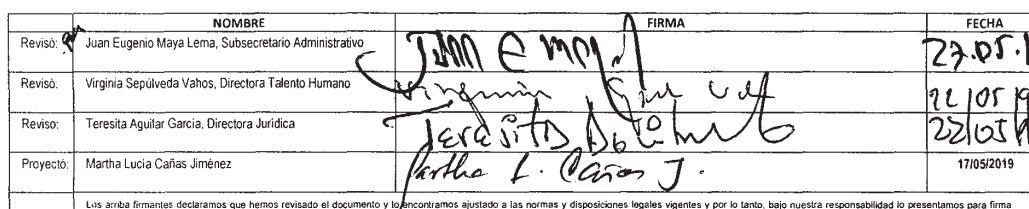 NOMBRE FIRMA FECHA
Revisó: Juan Eugenio Maya Lema, Subsecretario Administrativo Juan E Maya 27.05.
Revisó: Virginia Sepúlveda Vahos, Directora Talento Humano Virginia 22/05/19
Reviso: Teresita Aguilar Garcia, Directora Jurídica Teresita 22/05/
Proyectó: Martha Lucia Cañas Jiménez Martha L. Cañas J. 17/05/2019
Los arriba firmantes declaramos que hemos revisado el documento y lo encontramos ajustado a las normas y disposiciones legales vigentes y por lo tanto, bajo nuestra responsabilidad lo presentamos para firma